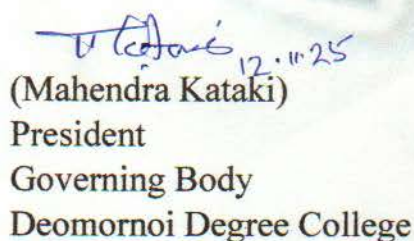 12.11.25
(Mahendra Kataki)
President
Governing Body
Deomornoi Degree College